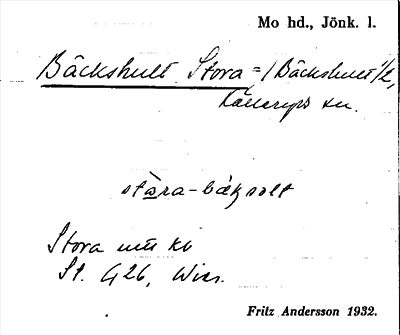 Mo hd., Jönk. l.
Bäckshult Stora = / Bäckshult 1/2,
Källeryds sn.
stara-bäksolt
Stora
St. G26,
Fritz Andersson 1932.